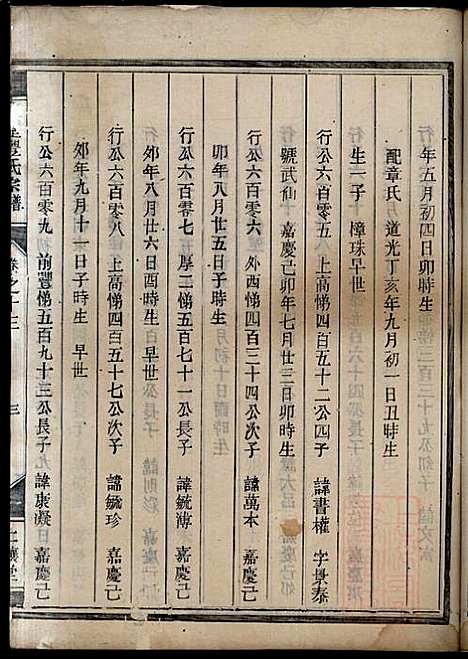 年五月初四日卯時生
配章氏 道光丁亥年九月初一日丑時生
生一子 樟珠早世
行公六百零五 上高悌四百五十二公四子 諱書權 字景泰
號武仙 嘉慶己卯年七月廿三日卯時生
行公六百零六 外高悌四百三十四公次子 諱萬本 嘉慶己
卯年八月廿五日子時生
行公六百零七 五厚二悌五百一十一公長子 諱毓濤 嘉慶己
卯年八月廿六日酉時生 早世
行公六百零八 上高悌四百五十七公次子 諱毓珍 嘉慶己
卯年九月十一日子時生 早世
行公六百零九 前豐悌五百九十三公長子 諱康凝 嘉慶己
氏宗譜
卷之 十三
三